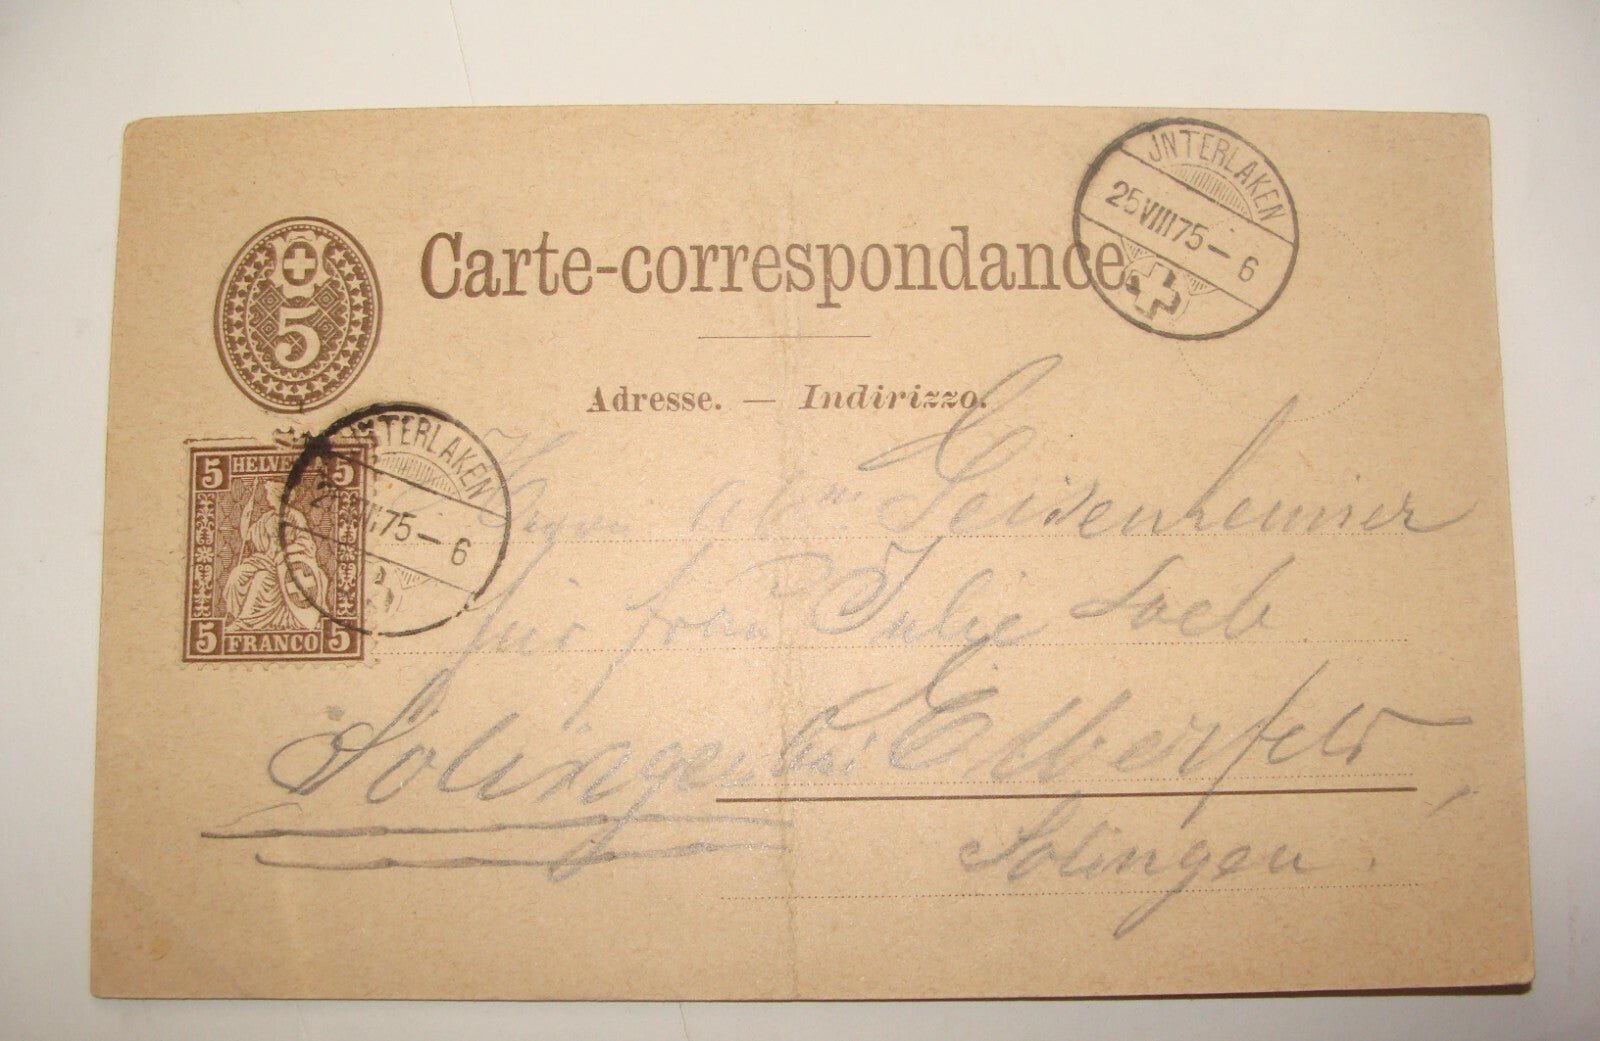 5
Carte-correspondance.
JNTERLAKEN
25 VIII 75 – 6
Adresse. — Indirizzo.
5 HELVETIA 5
5 FRANCO 5
JNTERLAKEN
VIII 75 – 6
Leidenheimer
für frau Julie Loeb
Solingen bei Elberfeld,
Solingen.